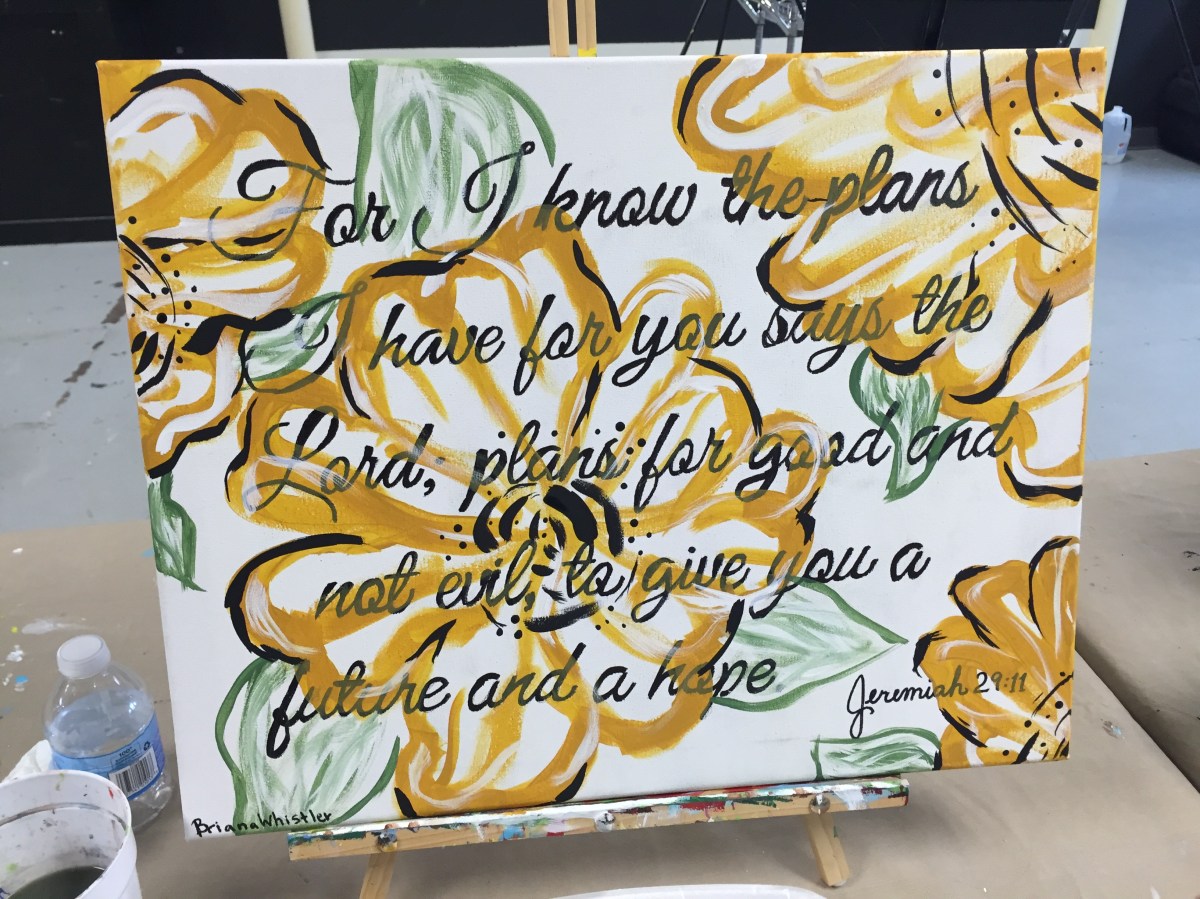 For I know the plans
I have for you says the
Lord, plans for good and
not evil, to give you a
future and a hope
Jeremiah 29:11
Briana Whistler